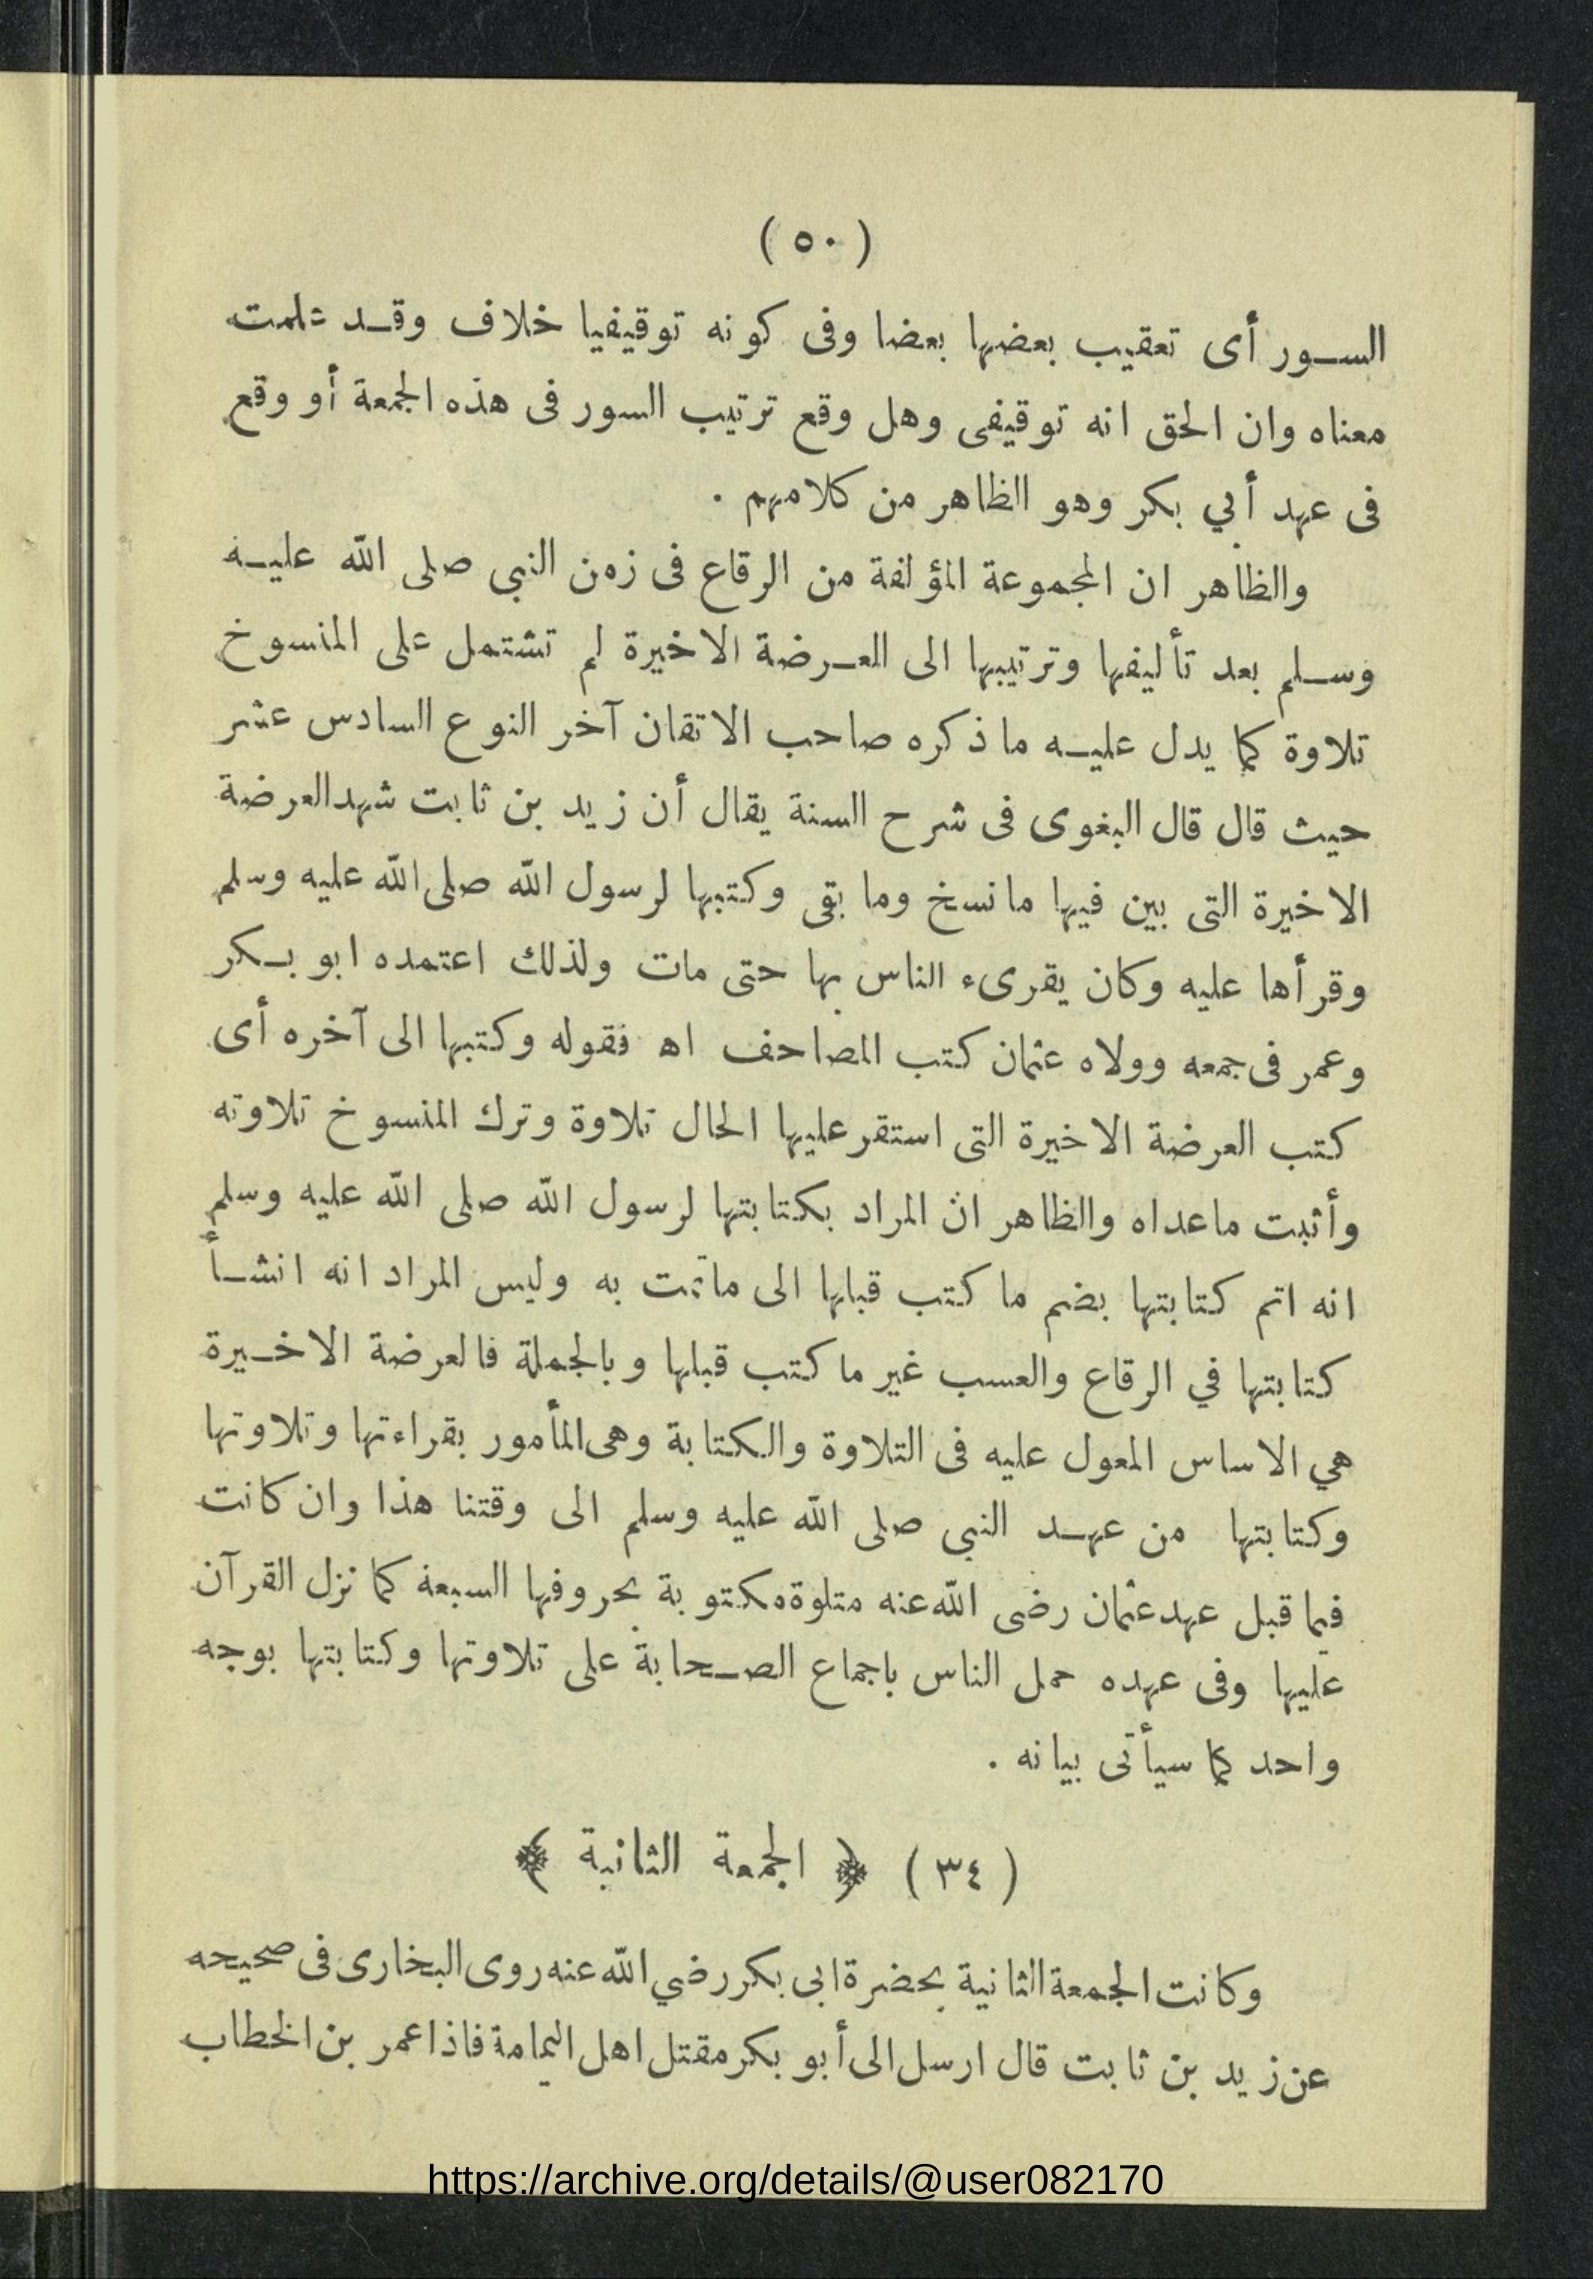 ( ٥٠ )
السور أى تعقيب بعضها بعضا وفى كونه توقيفيا خلاف وقد علمت
معناه وان الحق انه توقيفى وهل وقع ترتيب السور فى هذه الجمعة أو وقع
فى عهد أبي بكر وهو الظاهر من كلامهم .
والظاهر ان المجموعة المؤلفة من الرقاع فى زمن النبى صلى الله عليه
وسلم بعد تأليفها وترتيبها الى العرضة الاخيرة لم تشتمل على المنسوخ
تلاوة كما يدل عليه ما ذكره صاحب الاتقان آخر النوع السادس عشر
حيث قال قال البغوى فى شرح السنة يقال أن زيد بن ثابت شهد العرضة
الاخيرة التى بين فيها ما نسخ وما بقى وكتبها لرسول الله صلى الله عليه وسلم
وقرأها عليه وكان يقرىء الناس بها حتى مات ولذلك اعتمده ابو بكر
وعمر فى جمعه وولاه عثمان كتب المصاحف اه فقوله وكتبها الى آخره أى
كتب العرضة الاخيرة التى استقر عليها الحال تلاوة وترك المنسوخ تلاوته
وأثبت ماعداه والظاهر ان المراد بكتابتها لرسول الله صلى الله عليه وسلم
انه اتم كتابتها بضم ما كتب قبلها الى ماتمت به وليس المراد انه انشأ
كتابتها في الرقاع والعسب غير ما كتب قبلها وبالجملة فالعرضة الاخيرة
هي الاساس المعول عليه فى التلاوة والكتابة وهى المأمور بقراءتها وتلاوتها
وكتابتها من عهد النبى صلى الله عليه وسلم الى وقتنا هذا وان كانت
فيما قبل عهد عثمان رضى الله عنه متلوة مكتوبة بحروفها السبعة كما نزل القرآن
عليها وفى عهده حمل الناس باجماع الصحابة على تلاوتها وكتابتها بوجه
واحد كما سيأتى بيانه .
( ٣٤ ) ﴿ الجمعة الثانية ﴾
وكانت الجمعة الثانية بحضرة ابى بكر رضي الله عنه روى البخارى فى صحيحه
عن زيد بن ثابت قال ارسل الى أبو بكر مقتل اهل اليمامة فاذا عمر بن الخطاب
https://archive.org/details/@user082170